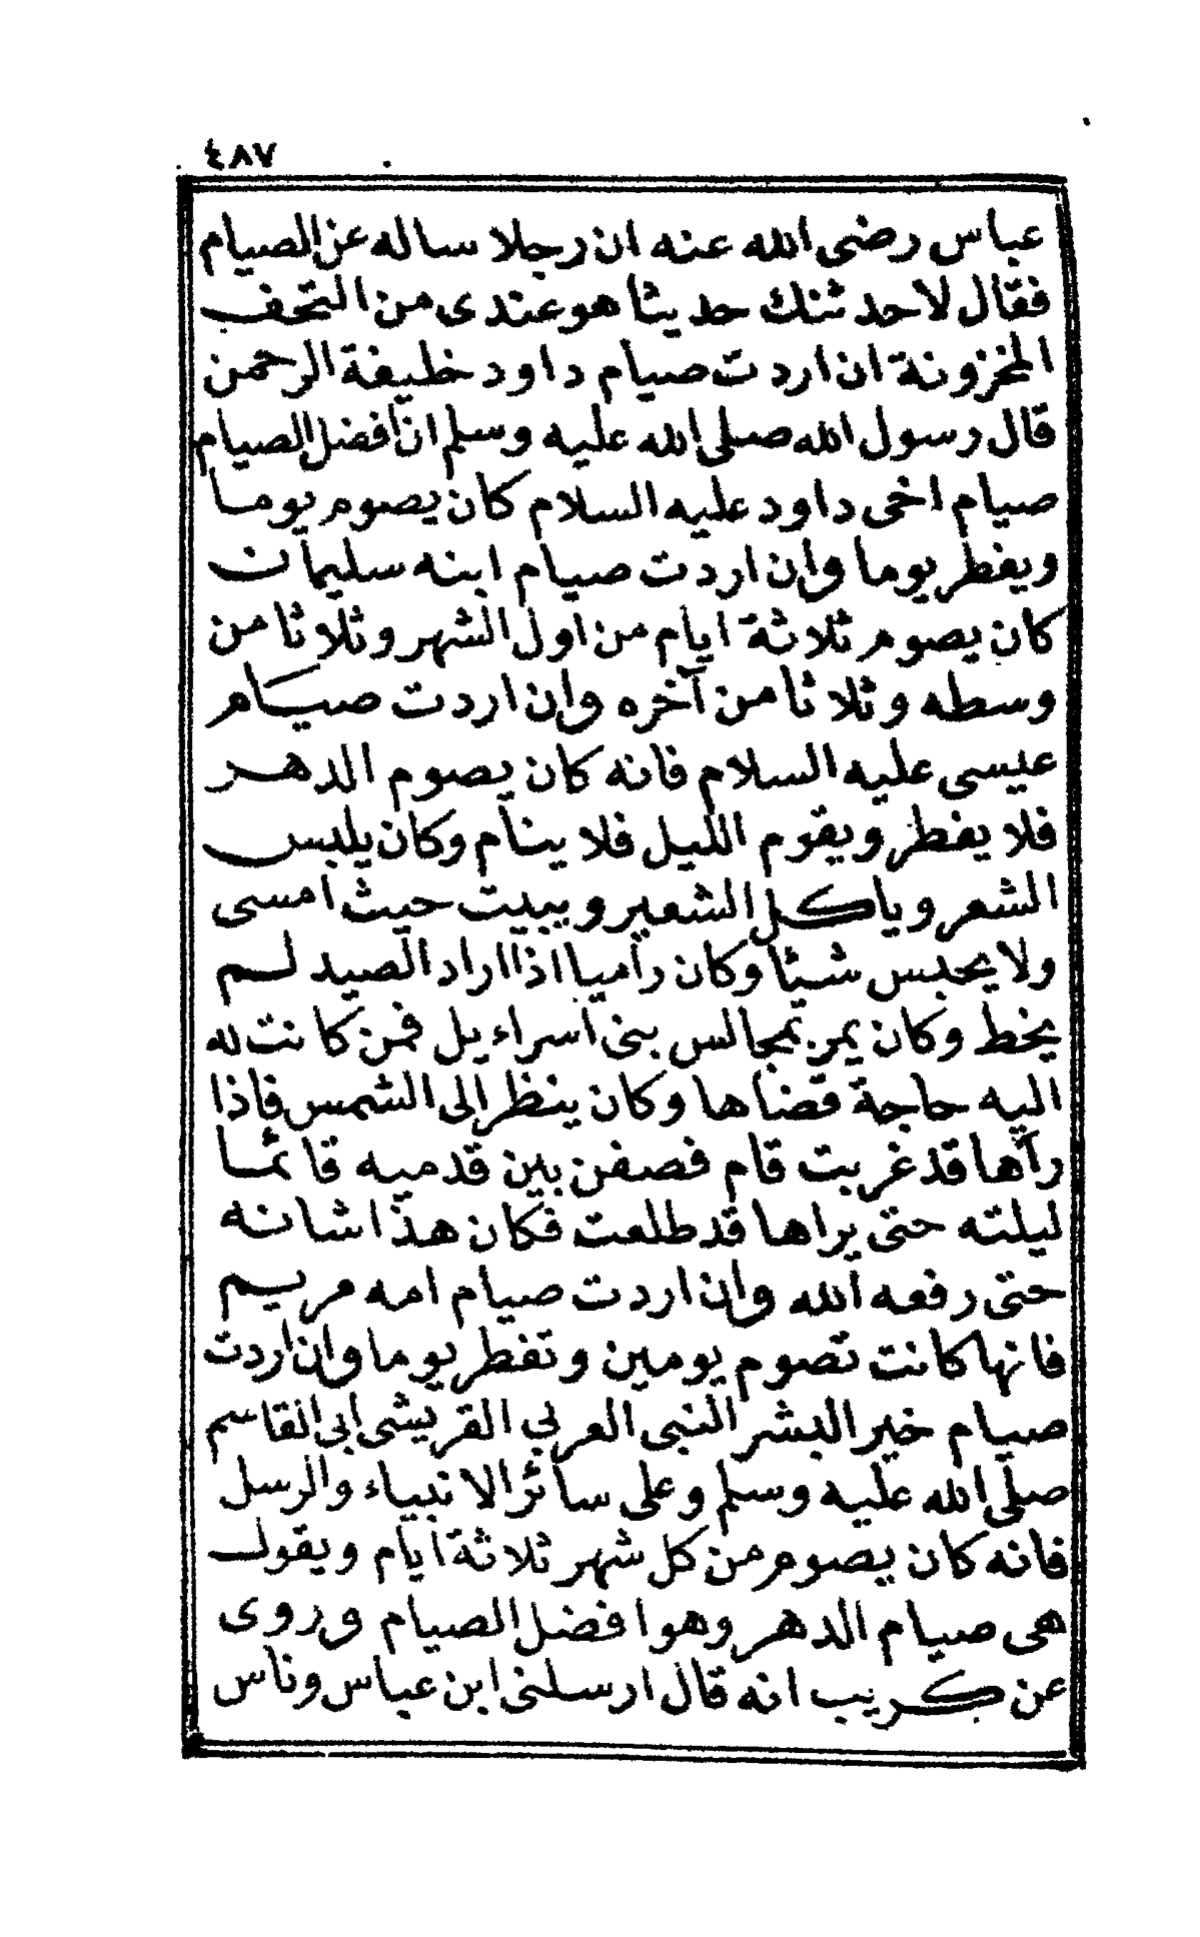 ٤٨٧
عباس رضى الله عنه ان رجلا ساله عن الصيام
فقال لاحدثنك حديثا هو عندى من التحف
المخزونة ان اردت صيام داود خليفة الرحمن
قال رسول الله صلى الله عليه وسلم ان افضل الصيام
صيام اخى داود عليه السلام كان يصوم يوما
ويفطر يوما وان اردت صيام ابنه سليمان
كان يصوم ثلاثة ايام من اول الشهر وثلاثا من
وسطه وثلاثا من آخره وان اردت صيام
عيسى عليه السلام فانه كان يصوم الدهر
فلا يفطر ويقوم الليل فلا ينام وكان يلبس
الشعر وياكل الشعير ويبيت حيث امسى
ولا يحبس شيئا وكان راميا اذا اراد الصيد لم
يخط وكان يمر بمجالس بنى اسراءيل فمن كانت له
اليه حاجة قضاها وكان ينظر الى الشمس فاذا
رآها قد غربت قام فصفن بين قدميه قائما
ليلته حتى يراها قد طلعت فكان هذا شانه
حتى رفعه الله وان اردت صيام امه مريم
فانها كانت تصوم يومين وتفطر يوما وان اردت
صيام خير البشر النبى العربي القريشى ابى القاسم
صلى الله عليه وسلم وعلى سائر الانبياء والرسل
فانه كان يصوم من كل شهر ثلاثة ايام ويقول
هى صيام الدهر وهو افضل الصيام وروى
عن كريب انه قال ارسلنى ابن عباس وناس